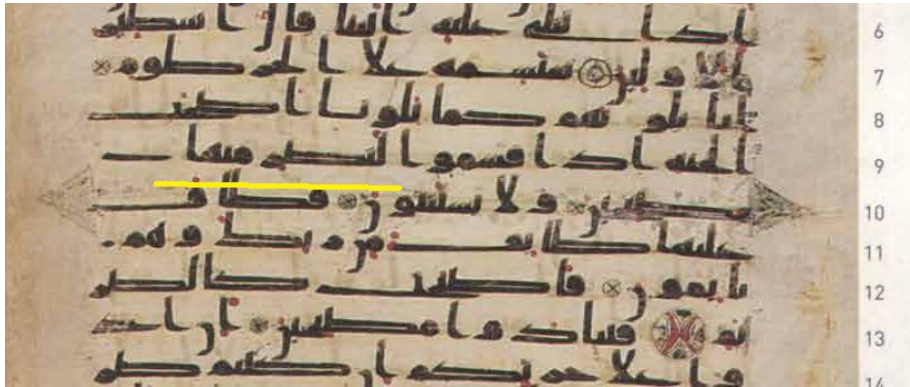 اذا تتلى عليه ايتنا قال اسطير 6
الاولين سنسمه علا الخرطوم 7
انا بلونهم كما بلونا اصحب 8
الجنه اذ اقسموا ليصرمنها 9
مصبحين ولا يستثنون فطاف 10
عليها طايف من ربك وهم 11
نايمون فاصبحت كالصر 12
يم فتنادوا مصبحين ان اغد 13
وا علا حرثكم ان كنتم صر 14